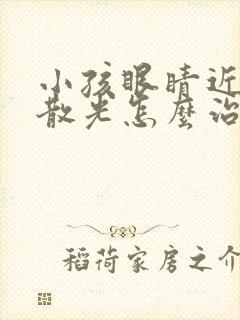 小孩眼睛近
散光怎麼治
稻荷家房之介